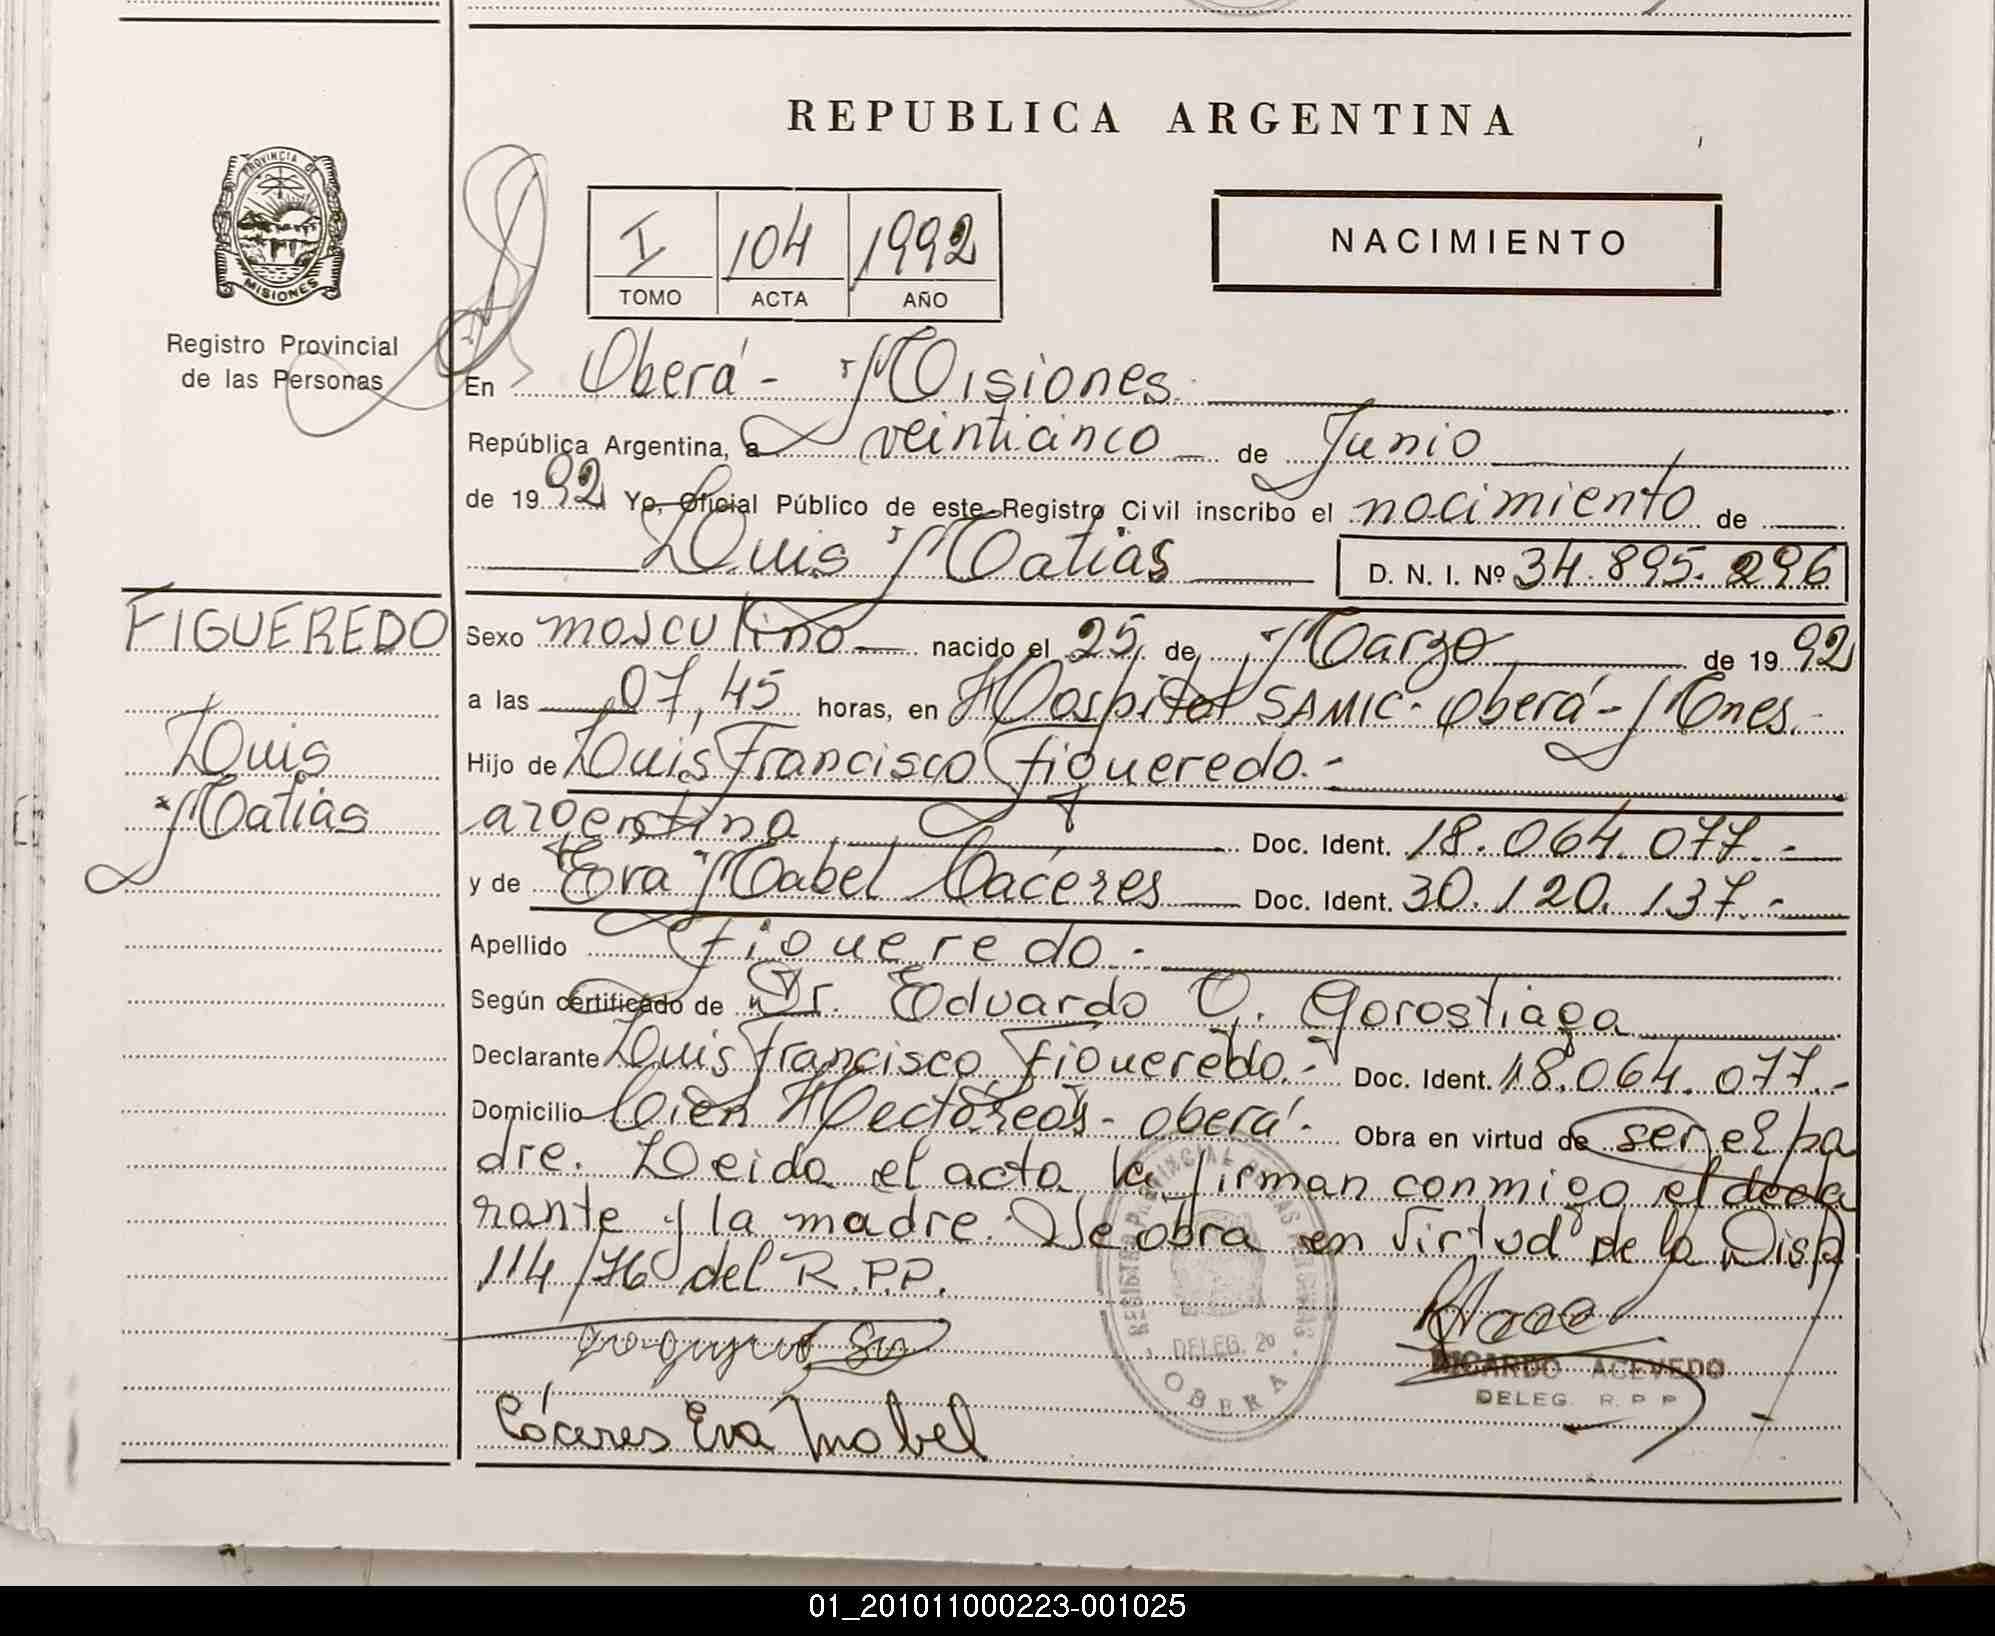 REPUBLICA ARGENTINA
PROVINCIA DE
MISIONES
Registro Provincial
de las Personas
I 104 1992
TOMO ACTA AÑO
NACIMIENTO
En Oberá - Misiones.
República Argentina, a veinticinco de Junio
de 1992 Yo, Oficial Público de este Registro Civil inscribo el nacimiento de
Luis Matias D. N. I. Nº 34.895.296
FIGUEREDO
Luis
Matias
Sexo masculino nacido el 25 de Marzo de 1992
a las 07,45 horas, en Hospital SAMIC - Oberá - Mnes.-
Hijo de Luis Francisco Figueredo.-
argentina Doc. Ident. 18.064.077.-
y de Eva Mabel Cáceres Doc. Ident. 30.120.137.-
Apellido Figueredo.-
Según certificado de Dr. Eduardo O. Gorostiaga
Declarante Luis Francisco Figueredo.- Doc. Ident. 18.064.077.-
Domicilio Cien Hectáreas - Oberá.- Obra en virtud de ser el pa
dre. Leida el acta la firman conmigo el decla
rante y la madre. Se obra en virtud de la Disp
114/76 del R.P.P.
Cáceres Eva Mabel
REGISTRO PROVINCIAL DE LAS PERSONAS
DELEG. 2º
OBERA
RICARDO ACEVEDO
DELEG. R. P. P.
01_201011000223-001025